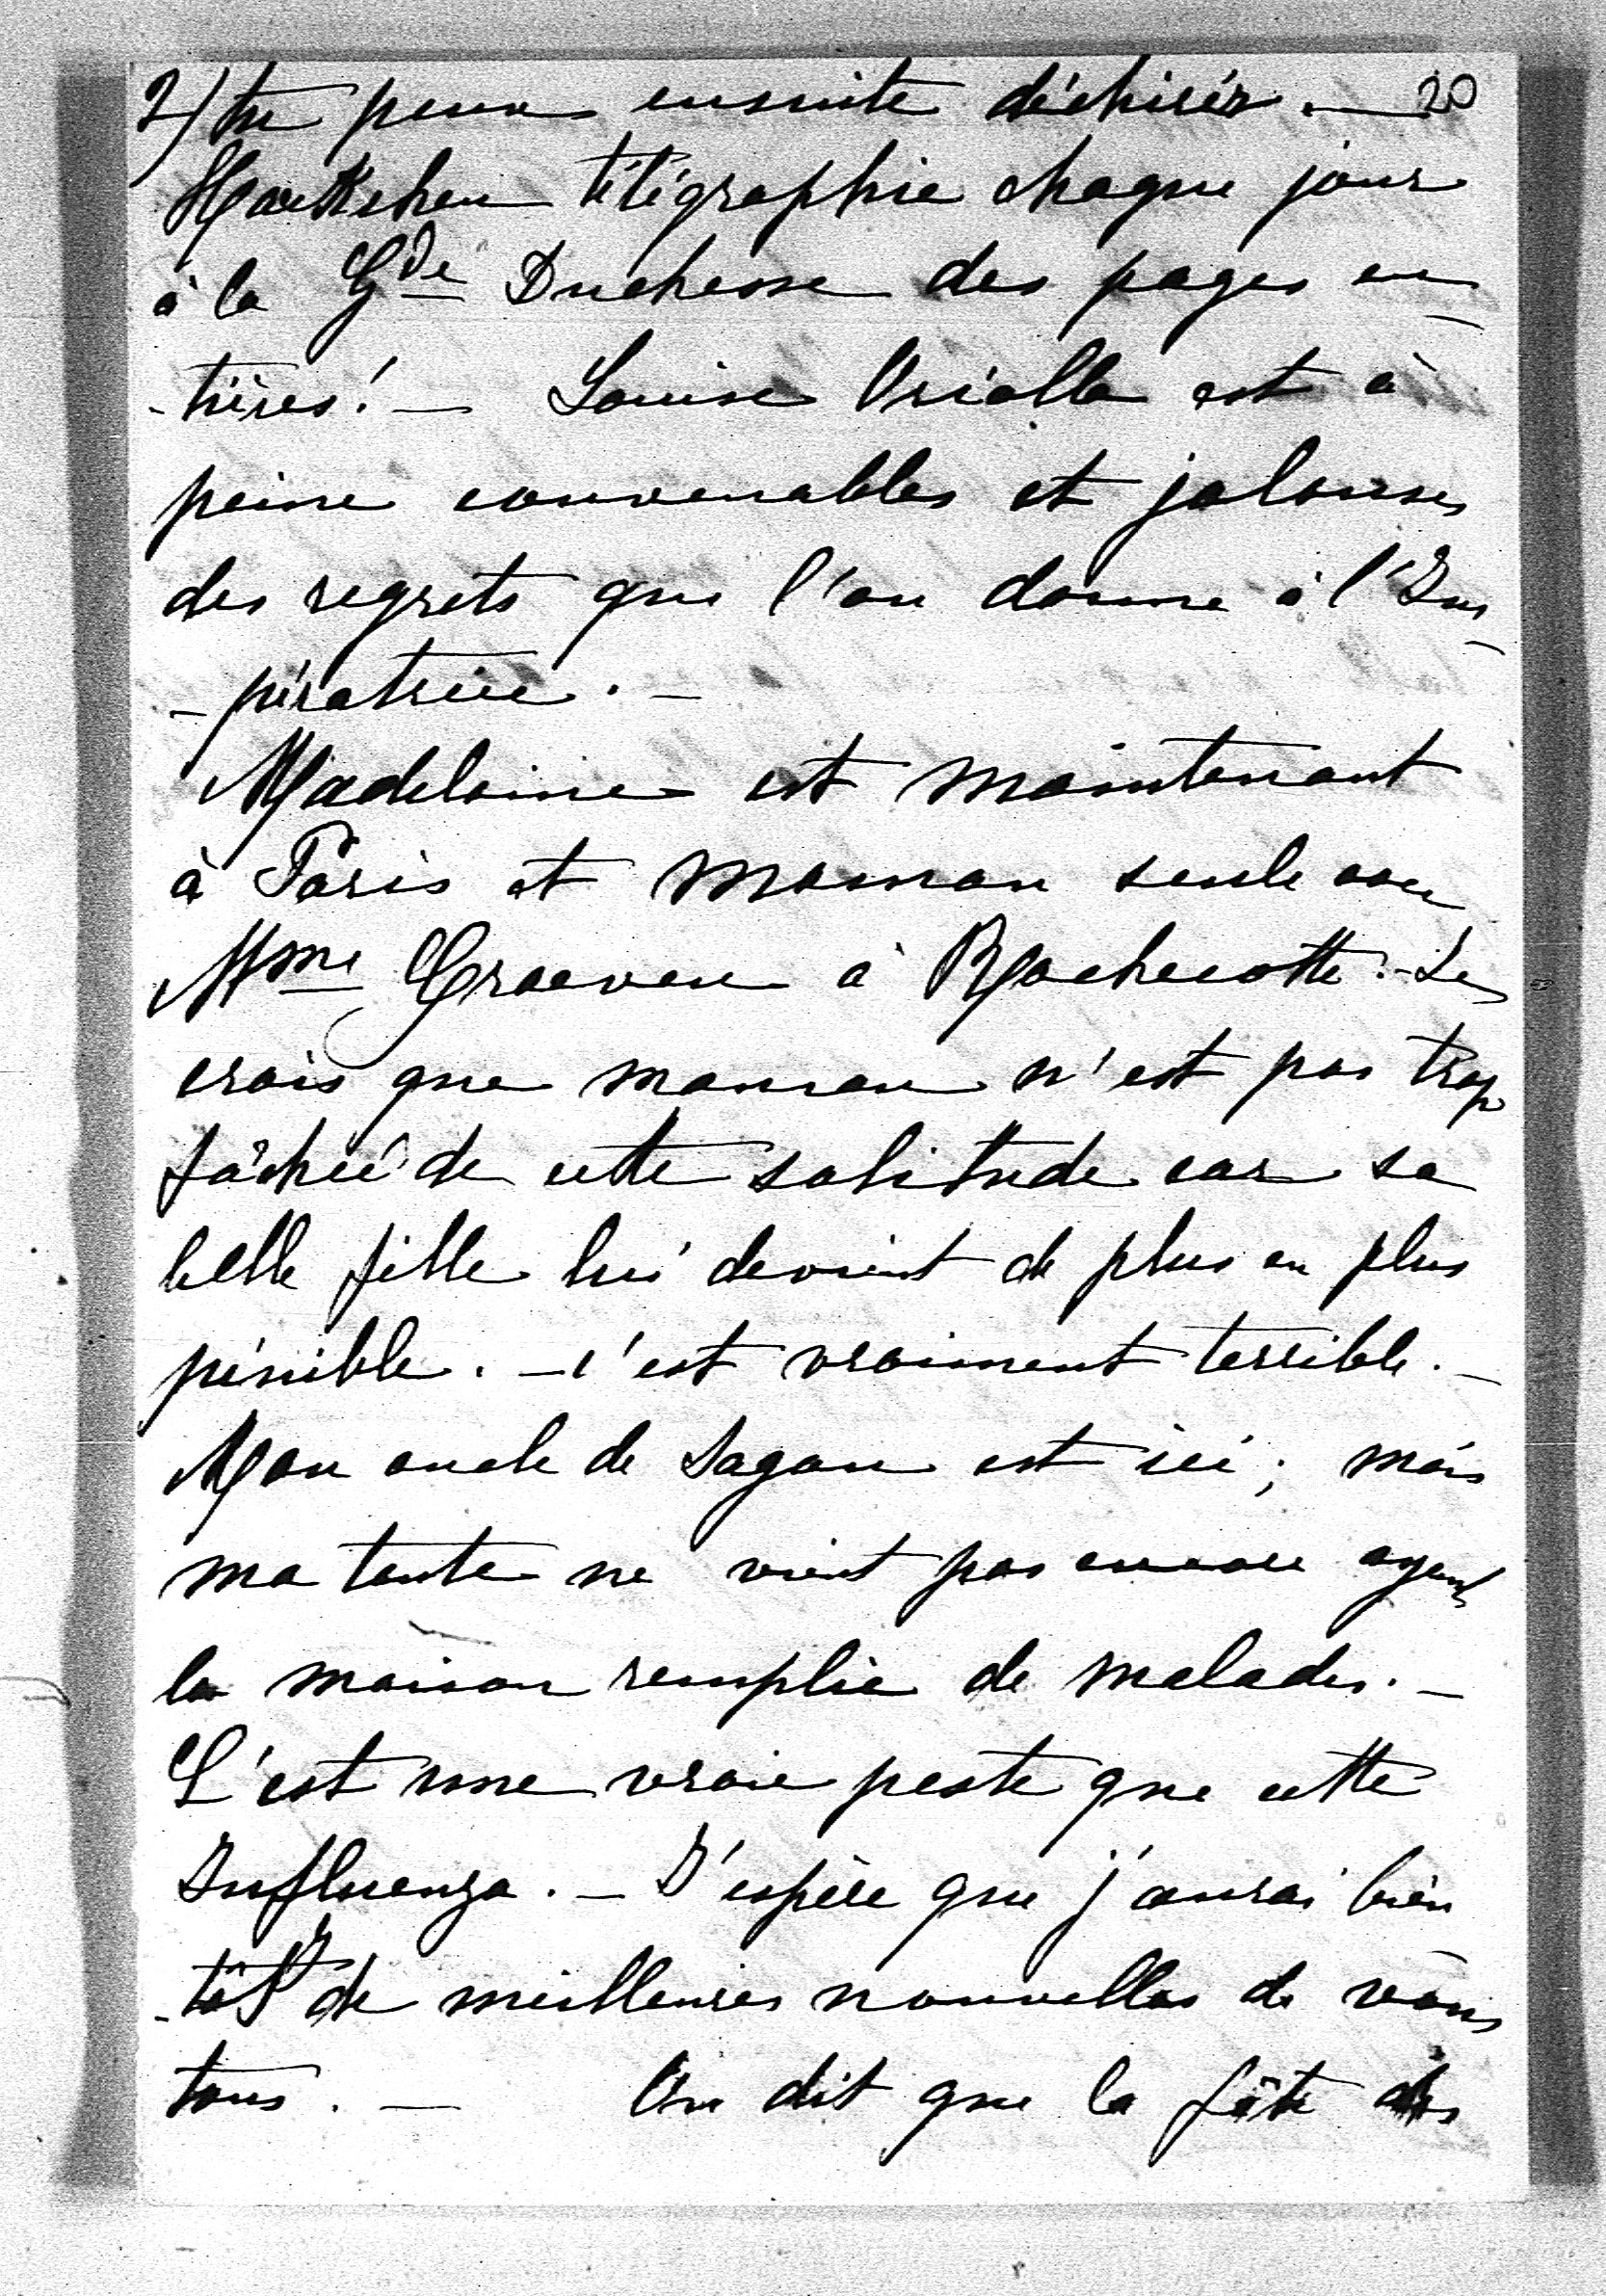 2) tu peux ensuite déchirer. — 20
télégraphie chaque jour
à la Gde Duchesse des pages en
-tières! — Louise Oriolla est à
peine convenables et jalouses
des regrets que l'on donne à l'Im
-pératrice. —
Madelaine est maintenant
à Paris et maman seule avec
Mme Graeven à Rochecotte. - Je
crois que maman n'est pas trop
fâchée de cette solitude car sa
belle fille lui devient de plus en plus
pénible. — c'est vraiment terrible. —
Mon oncle de Sagan est ici; mais
ma tante ne vient pas encore ayant
la maison remplie de malades. —
C'est une vraie peste que cette
Influenza. — J'espère que j'aurai bien
-tôt de meilleures nouvelles de vous
tous. — On dit que la fête des